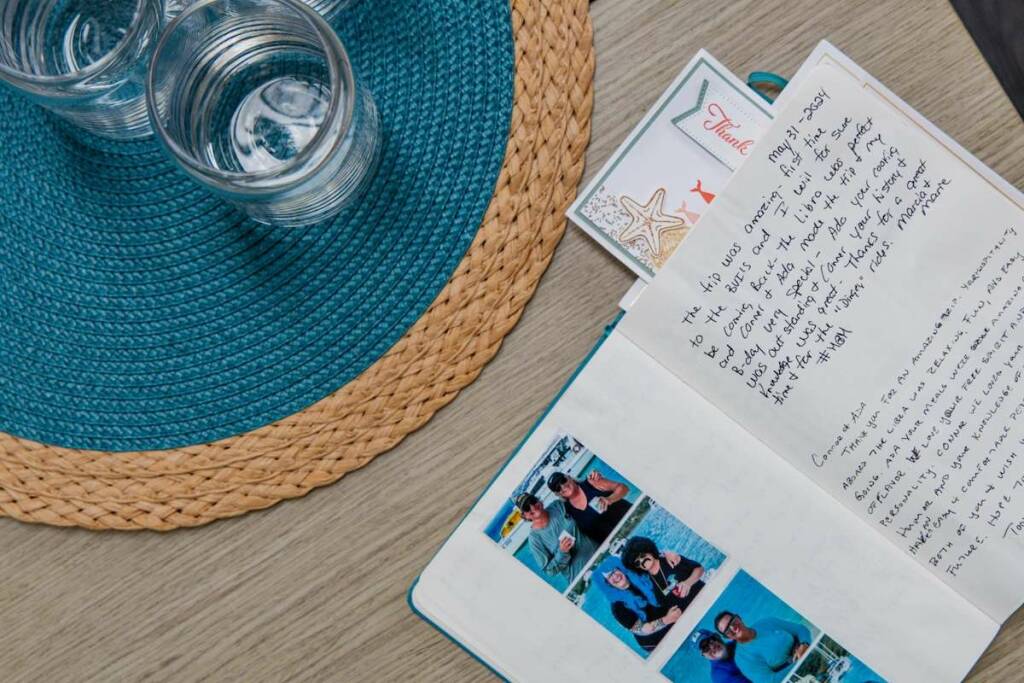 Thank
May 31 - 2024
The trip was amazing - first time
to the BVI's and I will for sure
be coming back - the Libra was perfect
and Conner & Ada made the trip & my
B-day very special - Ada your cooking
was outstanding & Conner your history &
Knowledge was great - Thanks for a great
time & for the "Dinger" rides. Marcia &
#MOM Marie
Conner & Ada
Thank you for an amazing trip. Your hospitality
aboard the Libra was relaxing, fun, and easy
going. Ada your meals were amazing
of flavor. We love your free spirit and
personality. Conner we loved your
humor and your knowledge of
both of you & wish
future. Hope